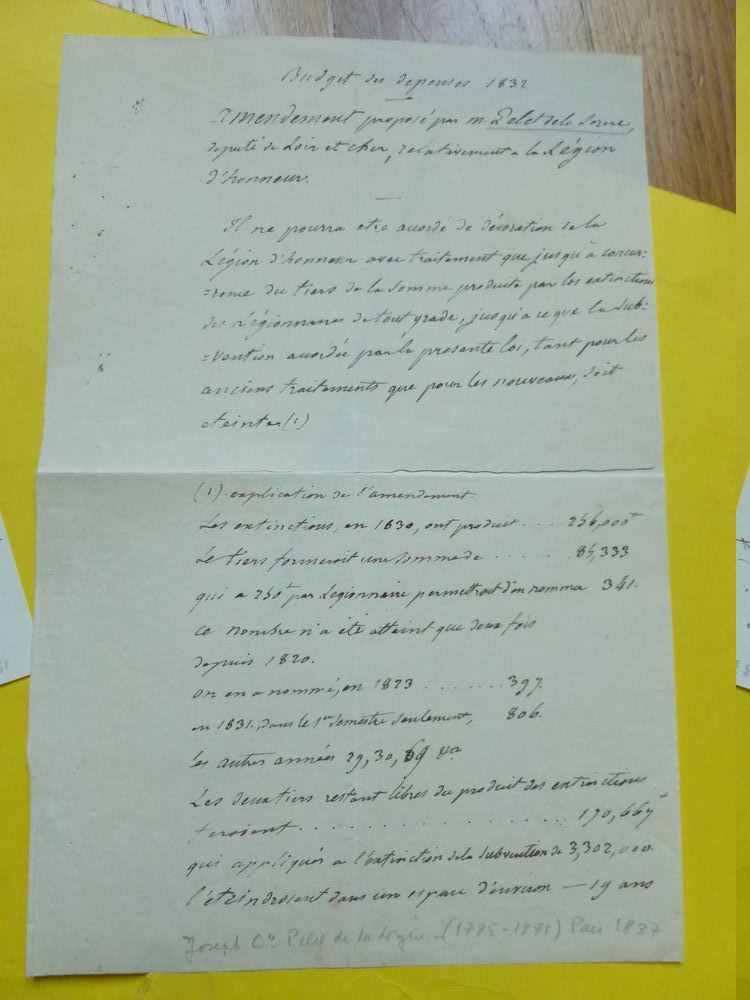 Budget des depenses 1832
amendement proposé par m. Pelet de la Lozere,
deputé de Loir et cher, relativement a la Légion
d'honneur.
Il ne pourra etre accordé de décoration de la
Légion d'honneur avec traitement que jusqu'à concur=
=rence du tiers de la somme produite par les extinctions
des Légionnaires de tout grade, jusqu'a ce que la sub=
=vention accordée par la presente loi, tant pour les
anciens traitements que pour les nouveaux, soit
eteinte. (1)
(1) explication de l'amendement.
Les extinctions, en 1830, ont produit . . . . 256,000f
Le tiers formeroit une somme de . . . . . . 85,333
qui a 250f par Légionnaire permettroit d'en nommer 341.
ce nombre n'a été atteint que deux fois
depuis 1820.
on en a nommé, en 1823 . . . . . . . 397.
en 1831, dans le 1er semestre seulement, 806.
les autres années 29, 30, 69 &a
Les deux tiers restant libres du produit des extinctions
feroient . . . . . . . . . . . . . . . . . 170,667f
qui appliqués a l'extinction de la subvention de 3,302,000
l'éteindroient dans un espace d'environ — 19 ans
Joseph Cte Pelet de la Lozère (1785-1871) Pair 1837